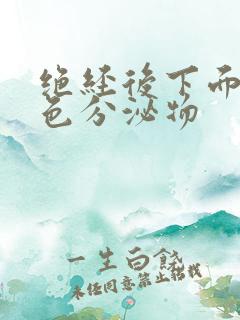 绝经後下面
色分泌物
一生白餞
未经同意禁止转载